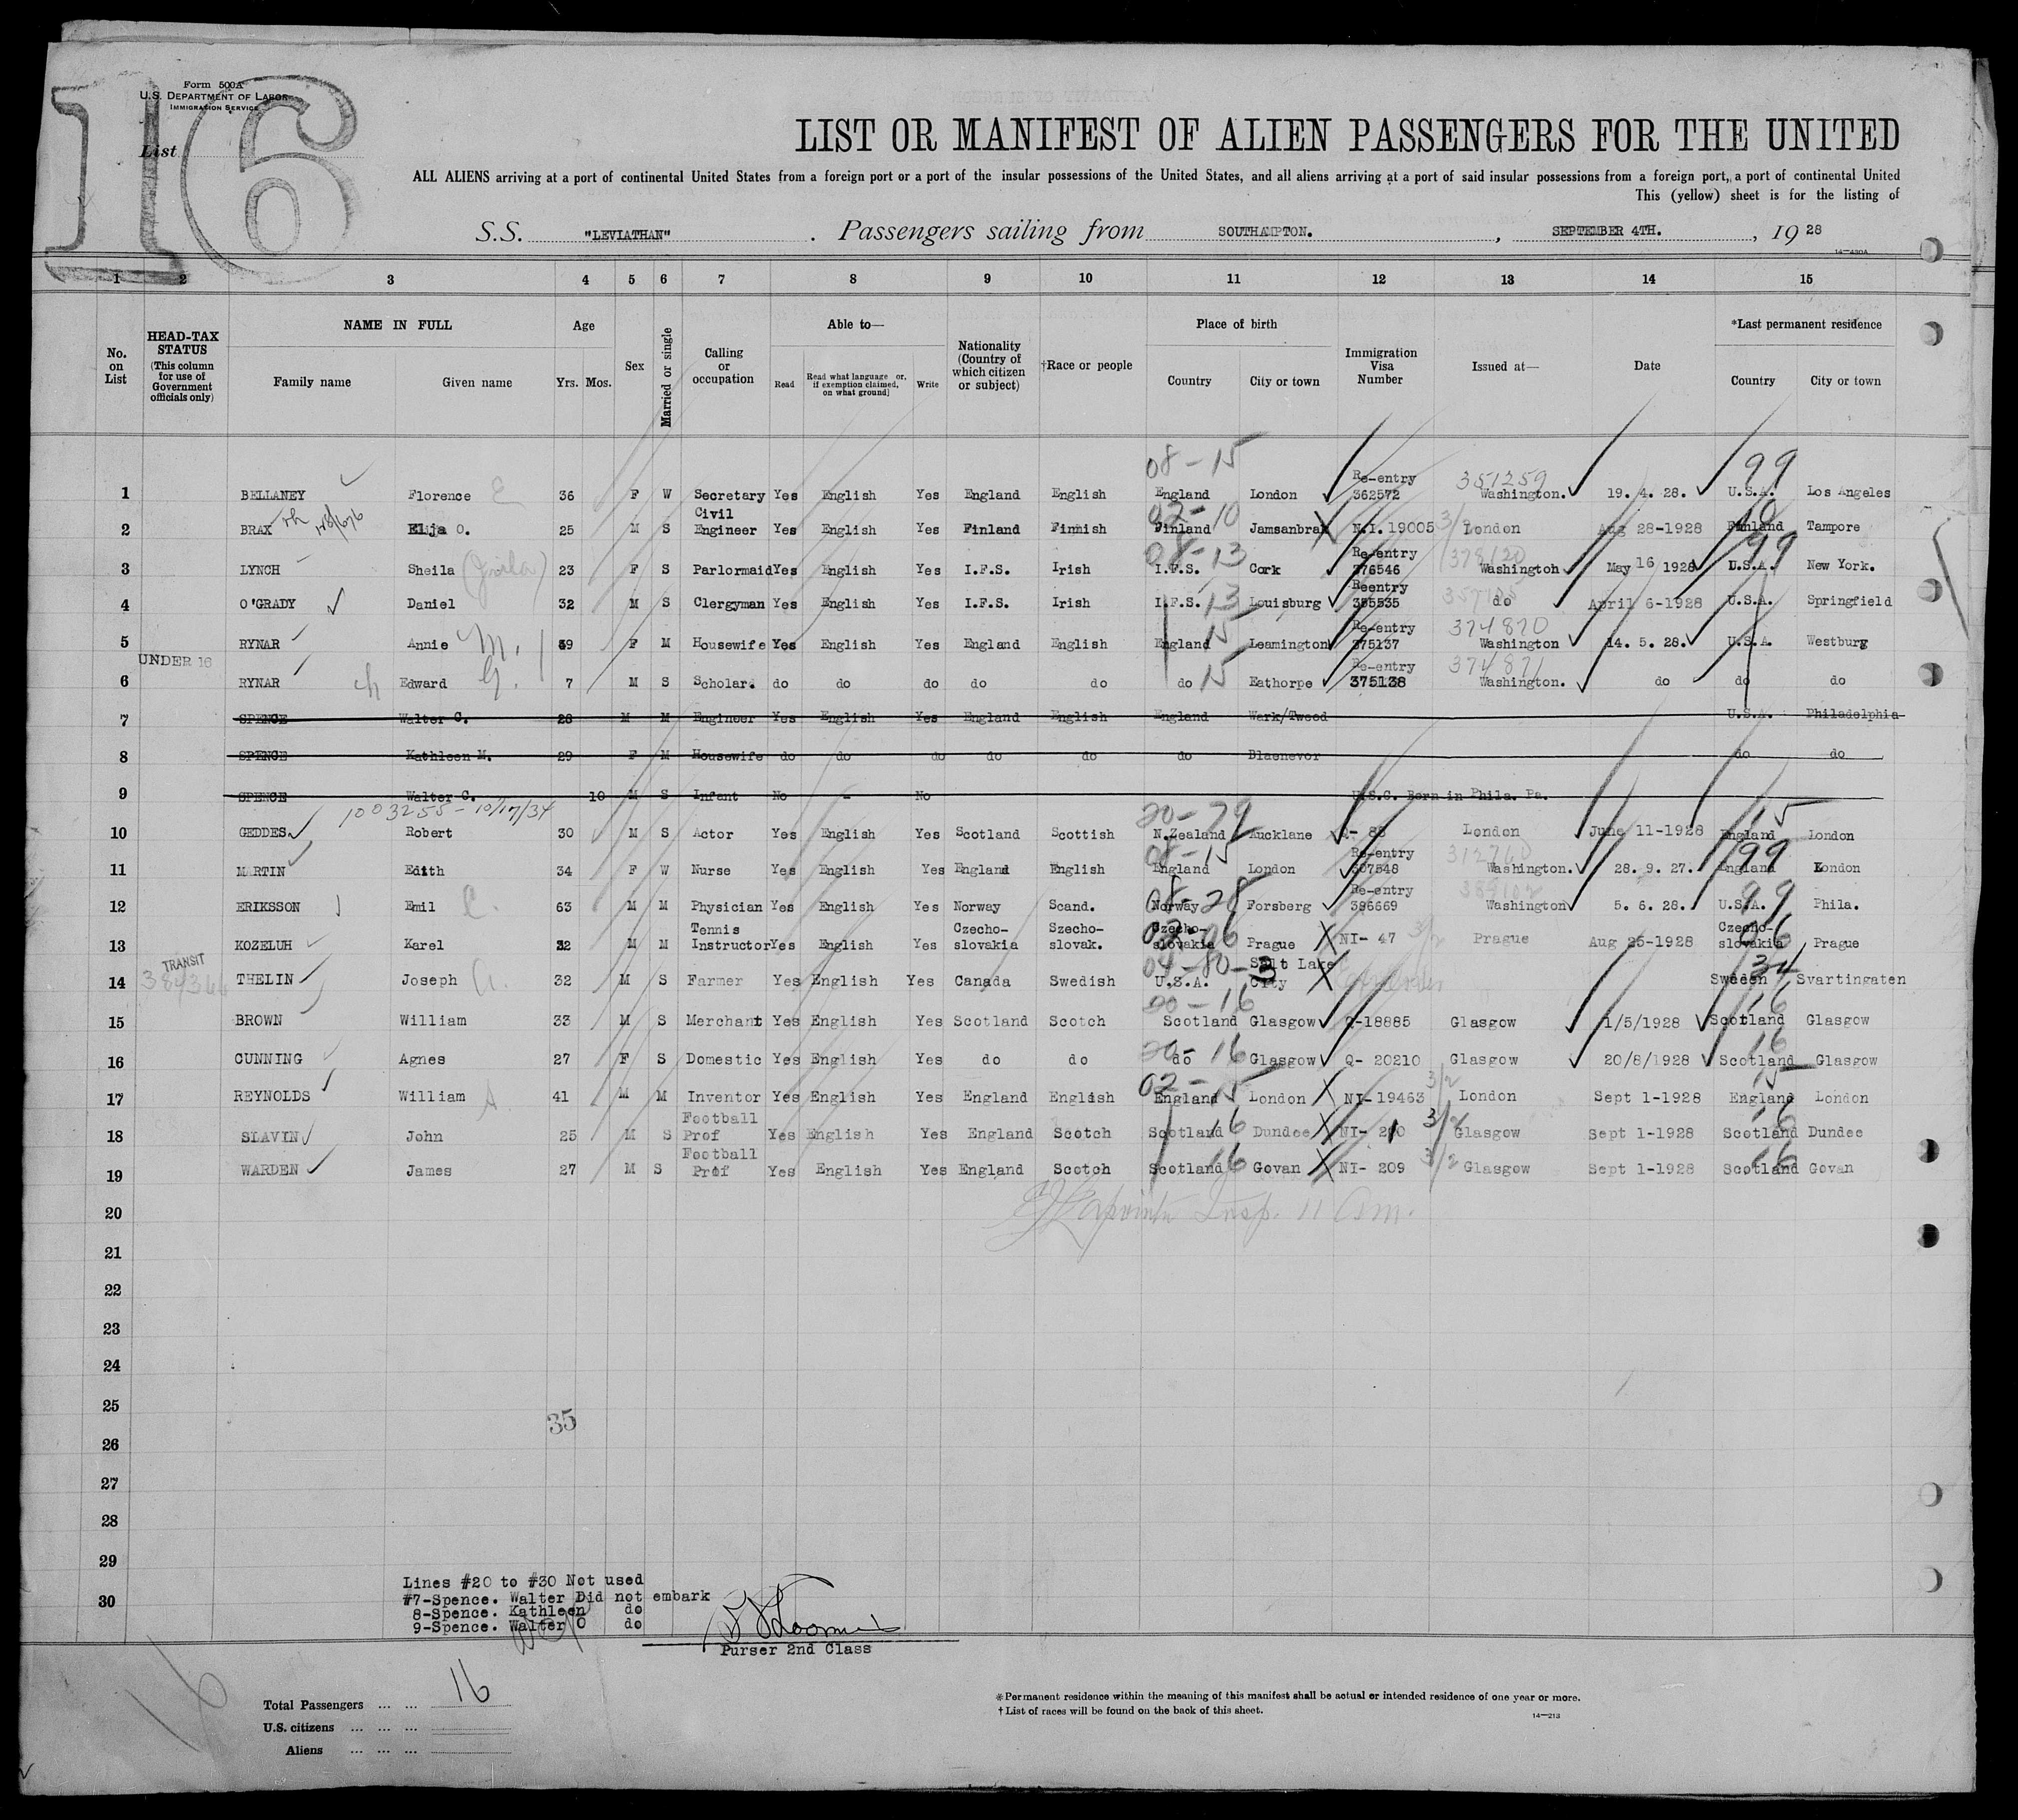 16
Form 500A
U.S. DEPARTMENT OF LABOR
IMMIGRATION SERVICE
List
LIST OR MANIFEST OF ALIEN PASSENGERS FOR THE UNITED
ALL ALIENS arriving at a port of continental United States from a foreign port or a port of the insular possessions of the United States, and all aliens arriving at a port of said insular possessions from a foreign port, a port of continental United
This (yellow) sheet is for the listing of
S.S. "LEVIATHAN" . Passengers sailing from SOUTHAMPTON. , SEPTEMBER 4TH. , 19 28
14—430A
1 2 3 4 5 6 7 8 9 10 11 12 13 14 15
No. on List HEAD-TAX STATUS (This column for use of Government officials only) NAME IN FULL Family name Given name Age Yrs. Mos. Sex Married or single Calling or occupation Able to— Read Read what language or, if exemption claimed, on what ground] Write Nationality (Country of which citizen or subject) †Race or people Place of birth Country City or town Immigration Visa Number Issued at— Date *Last permanent residence Country City or town
08-15 Re-entry 351259 99
1 BELLANEY Florence E 36 F W Secretary Yes English Yes England English England London 362572 Washington. 19. 4. 28. U.S.A. Los Angeles
Civil 02-10 10
2 BRAX Elja O. 25 M S Engineer Yes English Yes Finland Finnish Finland Jamsanbrak N.I. 19005 London Aug 28-1928 Finland Tampore
08-13 Re-entry 378120 99
3 LYNCH Sheila 23 F S Parlormaid Yes English Yes I.F.S. Irish I.F.S. Cork 376546 Washington May 16 1928 U.S.A. New York.
13 Reentry
4 O'GRADY Daniel 32 M S Clergyman Yes English Yes I.F.S. Irish I.F.S. Louisburg 355535 do April 6-1928 U.S.A. Springfield
15 Re-entry 374870
5 RYNAR Annie M. 39 F M Housewife Yes English Yes England English England Leamington 375137 Washington 14. 5. 28. U.S.A. Westburg
UNDER 16 15 Re-entry 374871
6 RYNAR Edward G. 7 M S Scholar. do do do do do do Eathorpe 375138 Washington. do do do
7 SPENCE Walter C. 28 M M Engineer Yes English Yes England English England Wark/Tweed U.S.A. Philadelphia
8 SPENCE Kathleen M. 29 F M Housewife do do do do do do Blaenevor do do
9 SPENCE Walter C. 10 M S Infant No - No U.S.C. Born in Phila. Pa.
1003255 - 10/17/34 20-79 15
10 GEDDES Robert 30 M S Actor Yes English Yes Scotland Scottish N.Zealand Aucklane - 85 London June 11-1928 England London
08-15 Re-entry 99
11 MARTIN Edith 34 F W Nurse Yes English Yes England English England London 307548 Washington. 28. 9. 27. England London
08-28 Re-entry 99
12 ERIKSSON Emil C. 63 M M Physician Yes English Yes Norway Scand. Norway Forsberg 396669 Washington 5. 6. 28. U.S.A. Phila.
Tennis Czecho- Szecho- Czecho- Czecho-
13 KOZELUH Karel 32 M M Instructor Yes English Yes slovakia slovak. slovakia Prague NI- 47 Prague Aug 25-1928 slovakia Prague
TRANSIT 04-80-3 Salt Lake 34
14 THELIN Joseph A. 32 M S Farmer Yes English Yes Canada Swedish U.S.A. City Sweden Svartingaten
20-16 16
15 BROWN William 33 M S Merchant Yes English Yes Scotland Scotch Scotland Glasgow Q-18885 Glasgow 1/5/1928 Scotland Glasgow
16 CUNNING Agnes 27 F S Domestic Yes English Yes do do do 16 Glasgow Q- 20210 Glasgow 20/8/1928 Scotland Glasgow
02-15 3/2 15
17 REYNOLDS William A 41 M M Inventor Yes English Yes England English England London NI-19463 London Sept 1-1928 England London
Football 16 3/2 16
18 SLAVIN John 25 M S Prof Yes English Yes England Scotch Scotland Dundee NI- 210 Glasgow Sept 1-1928 Scotland Dundee
Football 16 3/2 16
19 WARDEN James 27 M S Prof Yes English Yes England Scotch Scotland Govan NI- 209 Glasgow Sept 1-1928 Scotland Govan
20 Insp. 11 Am.
21
22
23
24
25
35
26
27
28
29
Lines #20 to #30 Not used
30 #7-Spence. Walter Did not embark
8-Spence. Kathleen do
9-Spence. Walter O do
Purser 2nd Class
16
Total Passengers ... ... 16
U.S. citizens ... ... ...
Aliens ... ... ...
*Permanent residence within the meaning of this manifest shall be actual or intended residence of one year or more.
†List of races will be found on the back of this sheet.
14—213